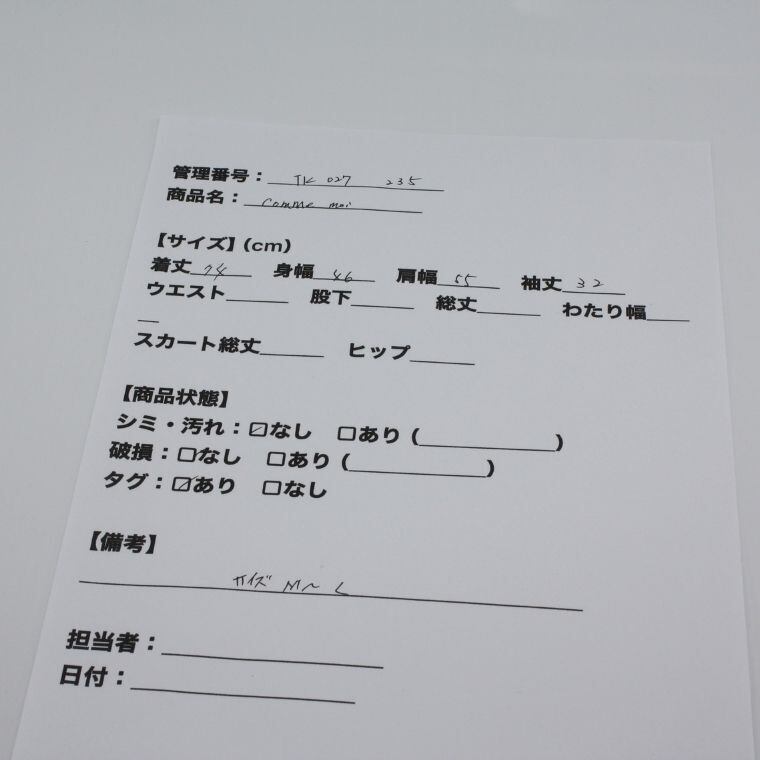 管理番号：TK 027 235
商品名：comme moi
【サイズ】(cm)
着丈 74 身幅 46 肩幅 55 袖丈 32
ウエスト______ 股下______ 総丈______ わたり幅____
__
スカート総丈______ ヒップ______
【商品状態】
シミ・汚れ：☑なし □あり (____________)
破損：□なし □あり (____________)
タグ：☑あり □なし
【備考】
サイズ M～L
担当者：____________
日付：____________